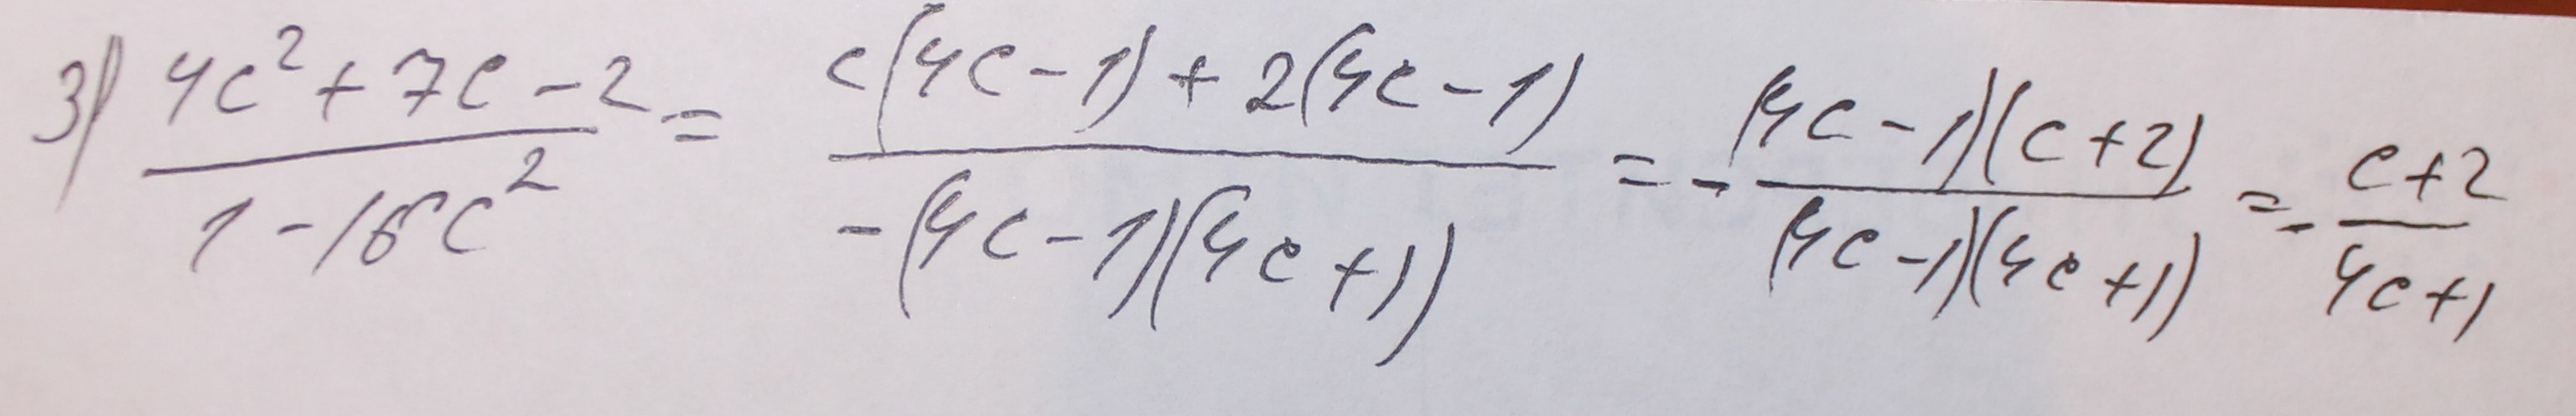 3) \frac{4c^2+7c-2}{1-16c^2} = \frac{c(4c-1)+2(4c-1)}{-(4c-1)(4c+1)} = -\frac{(4c-1)(c+2)}{(4c-1)(4c+1)} = -\frac{c+2}{4c+1}